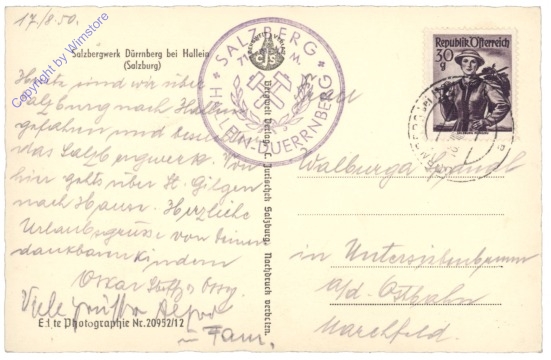 17./8.50.
Salzbergwerk Dürrnberg bei Hallein
(Salzburg)
Copyright by Wimstore
Heute sind wir über
Salzburg nach Hallein
gefahren und
das Salzbergwerk. Von
hier gehts über St. Gilgen
nach Hause. Herzliche
Urlaubsgrüße von Deinen
dankbaren Kindern
Oskar
Viele Grüße
Fam.
Echte Photographie Nr.20952/12
Bergwelt Verlag C. Jurischek Salzburg. Nachdruck verboten.
SALZBERG
HALLEIN-DUERRNBERG
CJS
Republik Österreich
30
g
Walburga
in Untersiebenbrunn
a/d. Ostbahn
Marchfeld.